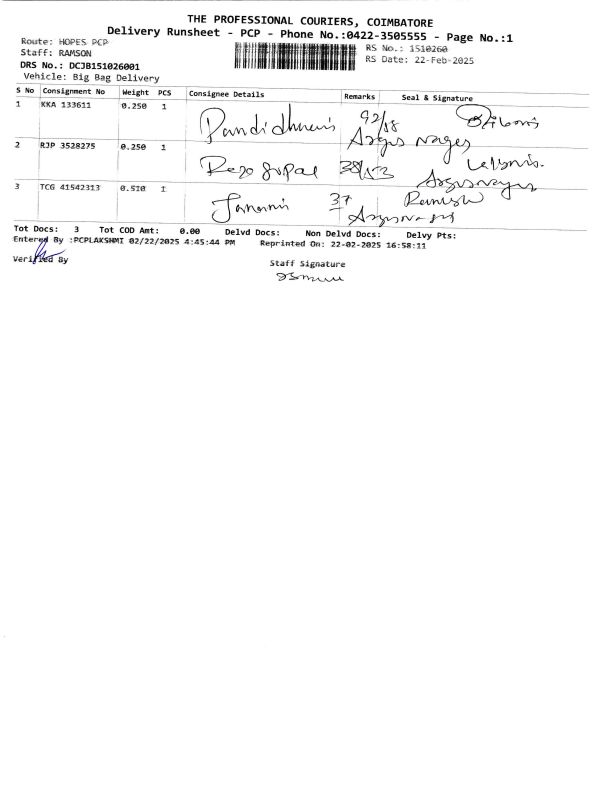 THE PROFESSIONAL COURIERS, COIMBATORE
Delivery Runsheet - PCP - Phone No.:0422-3505555 - Page No.:1
Route: HOPES PCP
Staff: RAMSON
DRS No.: DCJB151026001
Vehicle: Big Bag Delivery
RS No.: 1510260
RS Date: 22-Feb-2025
S No Consignment No Weight PCS Consignee Details Remarks Seal & Signature
1 KKA 133611 0.250 1 92/18
2 RJP 3528275 0.250 1
3 TCG 41542313 0.510 1 Janani 37 Ramesh
Tot Docs: 3 Tot COD Amt: 0.00 Delvd Docs: Non Delvd Docs: Delvy Pts:
Entered By :PCPLAKSHMI 02/22/2025 4:45:44 PM Reprinted On: 22-02-2025 16:58:11
Verified By
Staff Signature